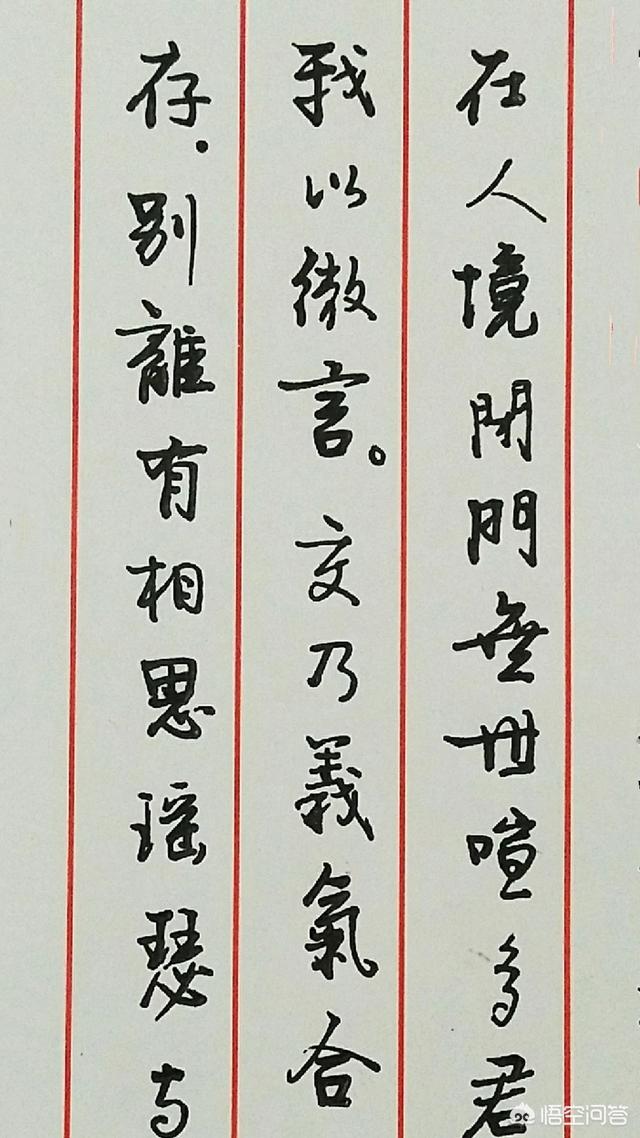 在人境閉門無世喧多君
我以微言。交乃義氣合
存.别離有相思瑶瑟与
悟空问答